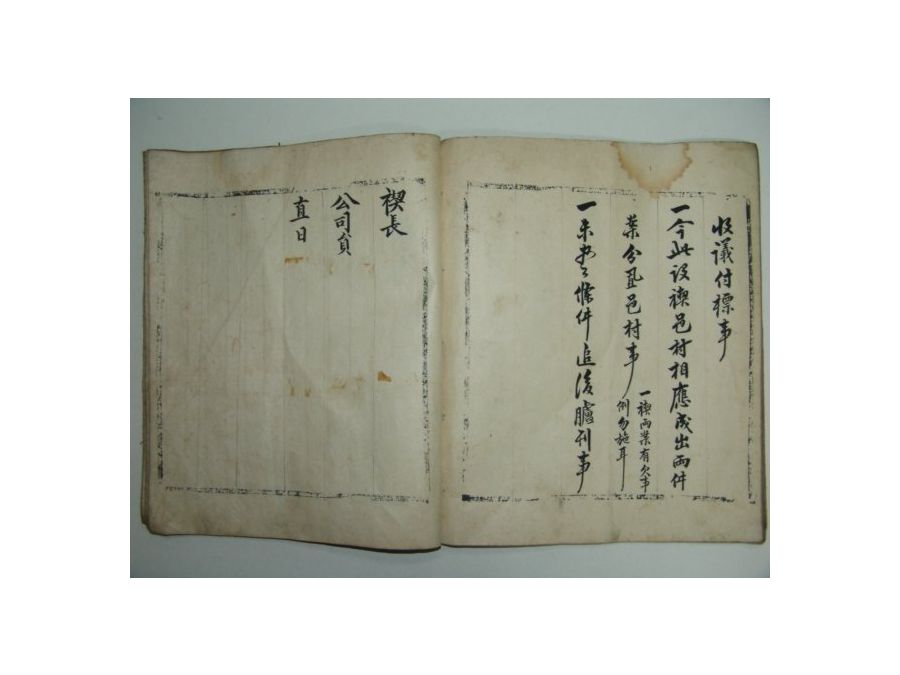 收議付標事
一今此設禊邑村相應成出兩件
業分置邑村事
一禊兩業有欠事
例勿施耳
一未盡條件追後牘刊事
禊長
公司員
直日